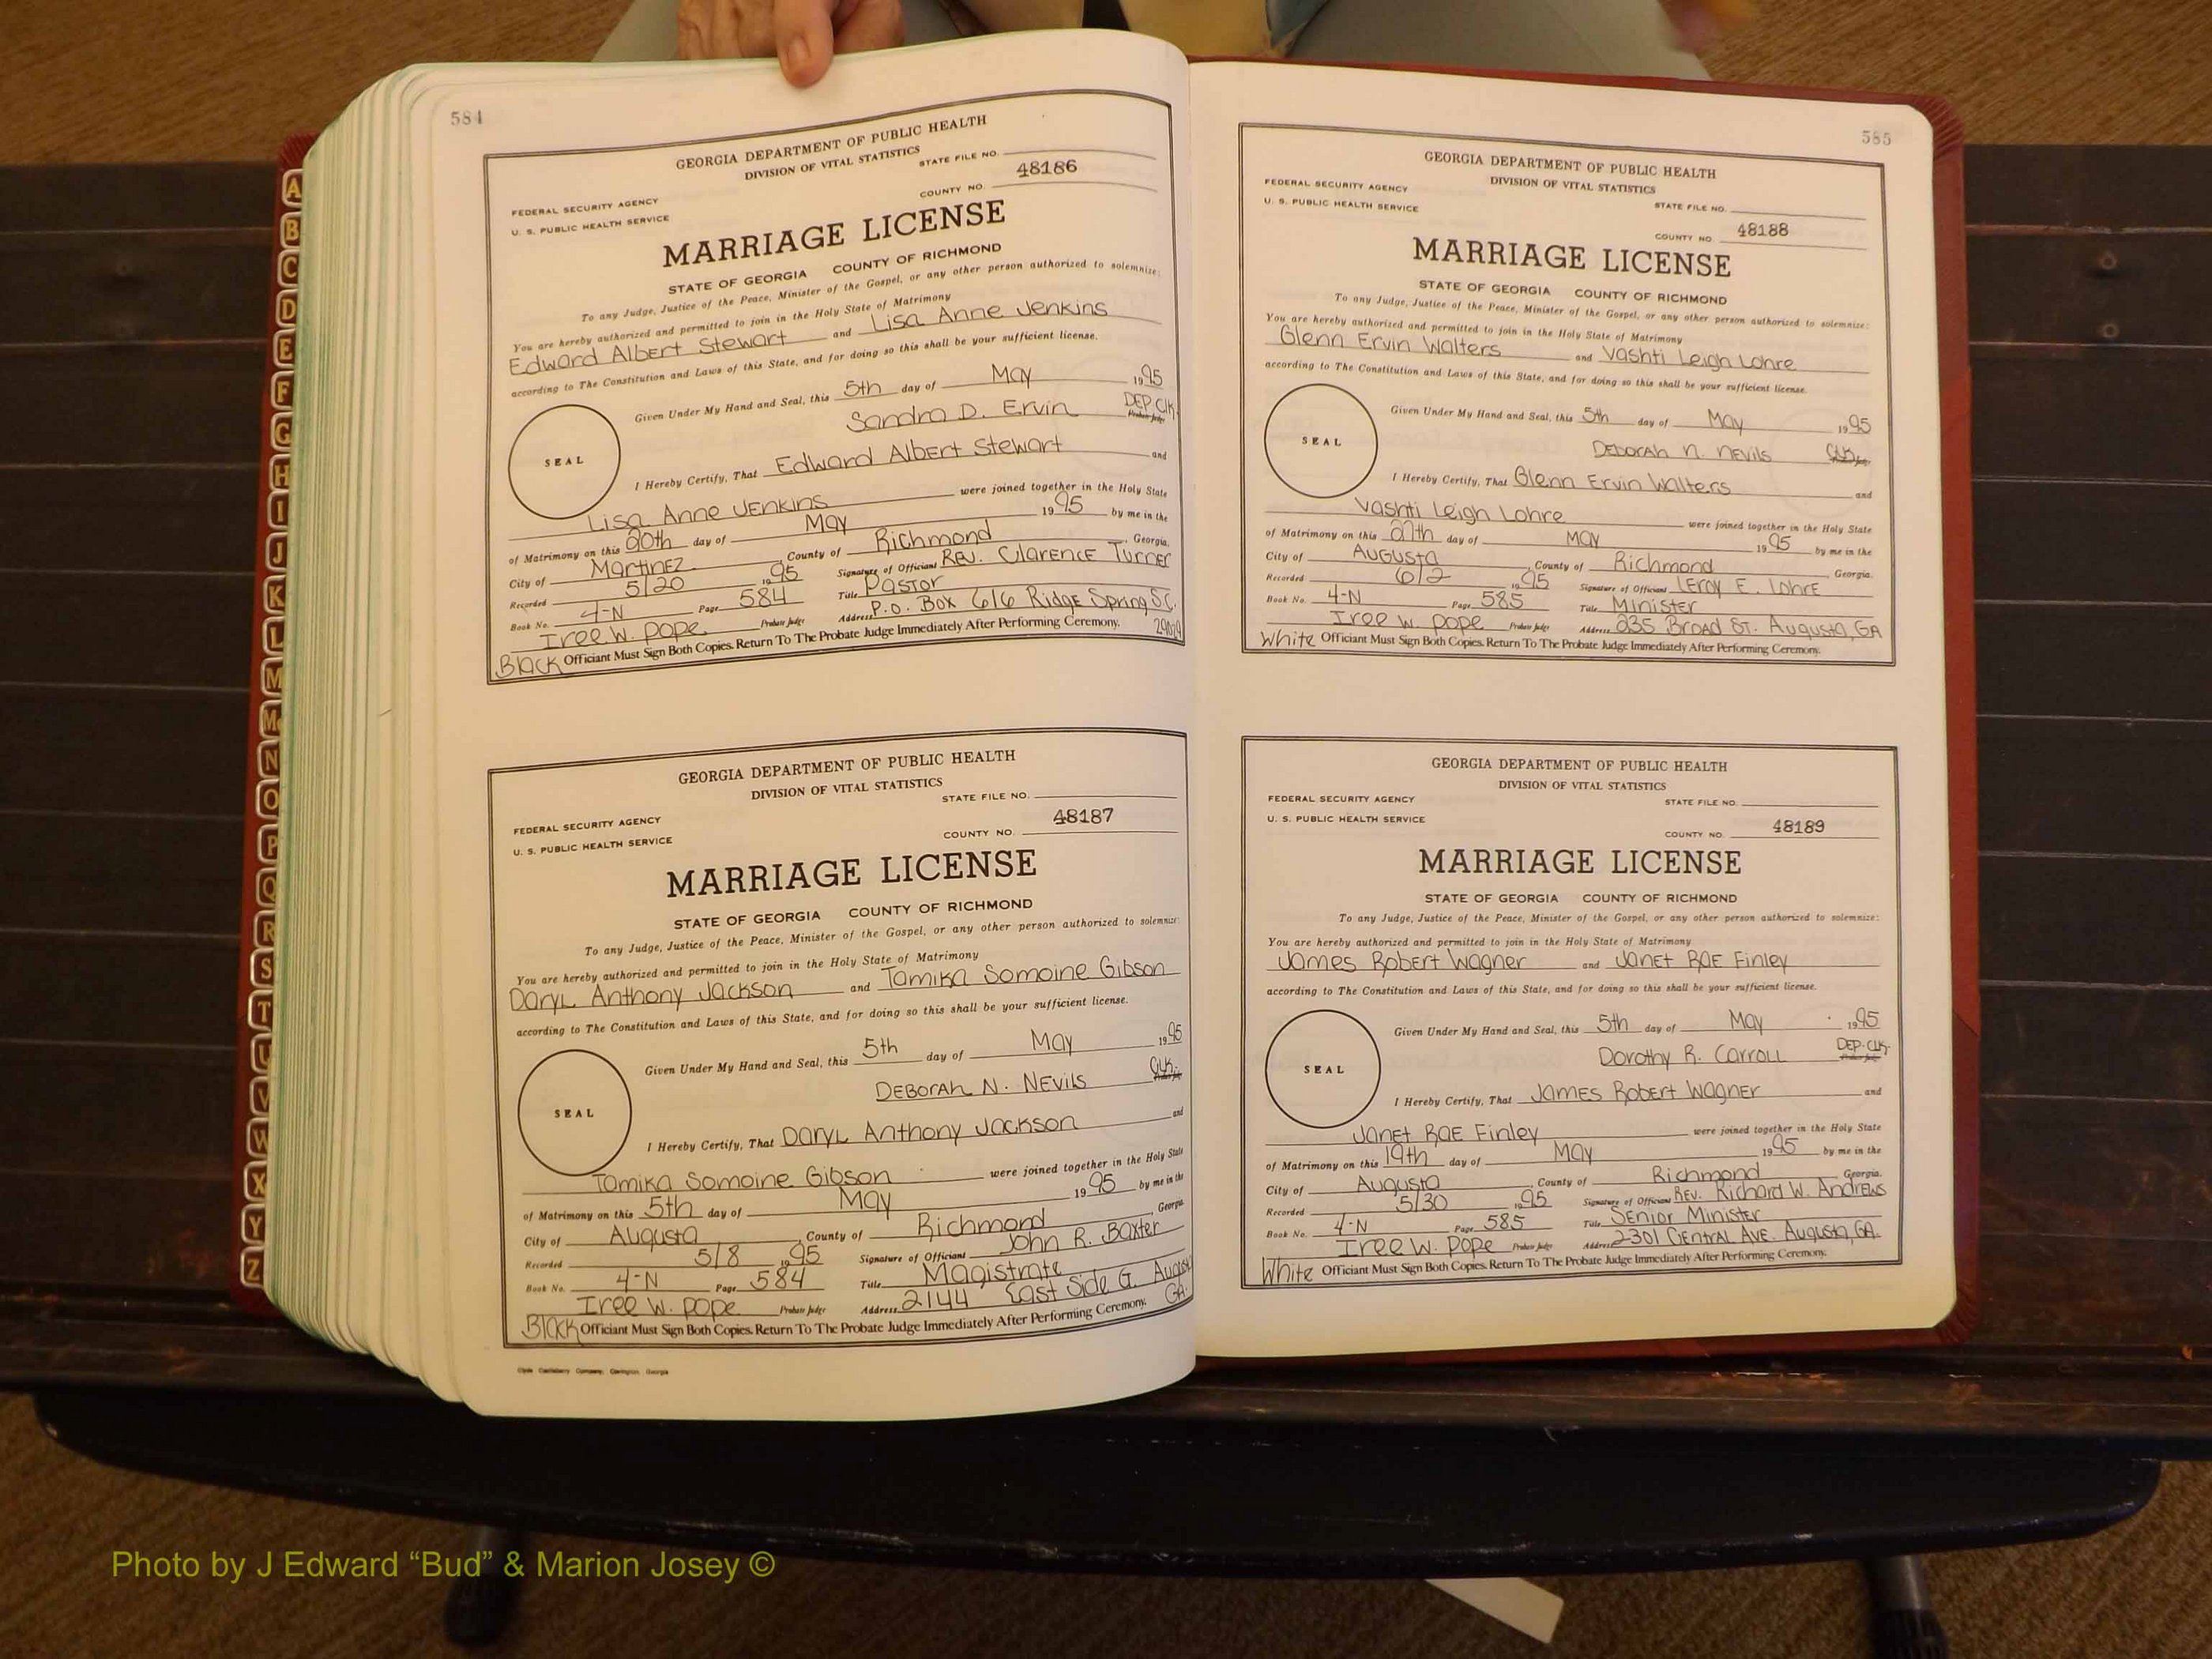 584
GEORGIA DEPARTMENT OF PUBLIC HEALTH
DIVISION OF VITAL STATISTICS
STATE FILE NO.
FEDERAL SECURITY AGENCY
U. S. PUBLIC HEALTH SERVICE
COUNTY NO. 48186
MARRIAGE LICENSE
STATE OF GEORGIA COUNTY OF RICHMOND
To any Judge, Justice of the Peace, Minister of the Gospel, or any other person authorized to solemnize:
You are hereby authorized and permitted to join in the Holy State of Matrimony
Edward Albert Stewart and Lisa Anne Jenkins
according to The Constitution and Laws of this State, and for doing so this shall be your sufficient license.
Given Under My Hand and Seal, this 5th day of May 1995
Sandra D. Ervin DEP. Clk.
SEAL
I Hereby Certify, That Edward Albert Stewart and
Lisa Anne Jenkins were joined together in the Holy State
of Matrimony on this 20th day of May 1995 by me in the
City of Martinez County of Richmond, Georgia.
Recorded 5/20 1995 Signature of Officiant Rev. Clarence Turner
Book No. 4-N Page 584 Title Pastor
Iree W. Pope Probate Judge Address P.O. Box 616 Ridge Spring SC.
Black Officiant Must Sign Both Copies. Return To The Probate Judge Immediately After Performing Ceremony.
GEORGIA DEPARTMENT OF PUBLIC HEALTH
DIVISION OF VITAL STATISTICS
STATE FILE NO.
FEDERAL SECURITY AGENCY
U. S. PUBLIC HEALTH SERVICE
COUNTY NO. 48187
MARRIAGE LICENSE
STATE OF GEORGIA COUNTY OF RICHMOND
To any Judge, Justice of the Peace, Minister of the Gospel, or any other person authorized to solemnize:
You are hereby authorized and permitted to join in the Holy State of Matrimony
Daryl Anthony Jackson and Tamika Somoine Gibson
according to The Constitution and Laws of this State, and for doing so this shall be your sufficient license.
Given Under My Hand and Seal, this 5th day of May 1995
Deborah N. Nevils Clk.
SEAL
I Hereby Certify, That Daryl Anthony Jackson and
Tamika Somoine Gibson were joined together in the Holy State
of Matrimony on this 5th day of May 1995 by me in the
City of Augusta, County of Richmond, Georgia
Recorded 5/8 1995 Signature of Officiant John R. Baxter
Book No. 4-N Page 584 Title Magistrate
Iree W. Pope Probate Judge Address 2144 East Side G. August GA.
Black Officiant Must Sign Both Copies. Return To The Probate Judge Immediately After Performing Ceremony.
585
GEORGIA DEPARTMENT OF PUBLIC HEALTH
DIVISION OF VITAL STATISTICS
FEDERAL SECURITY AGENCY
U. S. PUBLIC HEALTH SERVICE
STATE FILE NO.
COUNTY NO. 48188
MARRIAGE LICENSE
STATE OF GEORGIA COUNTY OF RICHMOND
To any Judge, Justice of the Peace, Minister of the Gospel, or any other person authorized to solemnize:
You are hereby authorized and permitted to join in the Holy State of Matrimony
Glenn Ervin Walters and Vashti Leigh Lohre
according to The Constitution and Laws of this State, and for doing so this shall be your sufficient license.
Given Under My Hand and Seal, this 5th day of May 1995
Deborah N. Nevils Clk.
SEAL
I Hereby Certify, That Glenn Ervin Walters and
Vashti Leigh Lohre were joined together in the Holy State
of Matrimony on this 27th day of May 1995 by me in the
City of Augusta, County of Richmond Georgia.
Recorded 6/2 1995 Signature of Officiant Leroy E. Lohre
Book No. 4-N Page 585 Title Minister
Iree W. Pope Probate Judge Address 235 Broad St. Augusta, GA
White Officiant Must Sign Both Copies. Return To The Probate Judge Immediately After Performing Ceremony.
GEORGIA DEPARTMENT OF PUBLIC HEALTH
DIVISION OF VITAL STATISTICS
FEDERAL SECURITY AGENCY
STATE FILE NO.
U. S. PUBLIC HEALTH SERVICE
COUNTY NO. 48189
MARRIAGE LICENSE
STATE OF GEORGIA COUNTY OF RICHMOND
To any Judge, Justice of the Peace, Minister of the Gospel, or any other person authorized to solemnize:
You are hereby authorized and permitted to join in the Holy State of Matrimony
James Robert Wagner and Janet Rae Finley
according to The Constitution and Laws of this State, and for doing so this shall be your sufficient license.
Given Under My Hand and Seal, this 5th day of May 1995
Dorothy R. Carroll DEP. Clk.
SEAL
I Hereby Certify, That James Robert Wagner and
Janet Rae Finley were joined together in the Holy State
of Matrimony on this 19th day of May 1995 by me in the
City of Augusta, County of Richmond Georgia.
Recorded 5/30 1995 Signature of Officiant Rev. Richard W. Andrews
Book No. 4-N Page 585 Title Senior Minister
Iree W. Pope Probate Judge Address 2301 Central Ave. Augusta, GA.
White Officiant Must Sign Both Copies. Return To The Probate Judge Immediately After Performing Ceremony.
A
B
C
D
E
F
G
H
I
J
K
L
M
Mc
N
O
P
Q
R
S
T
U
V
W
X
Y
Z
Photo by J Edward “Bud” & Marion Josey ©